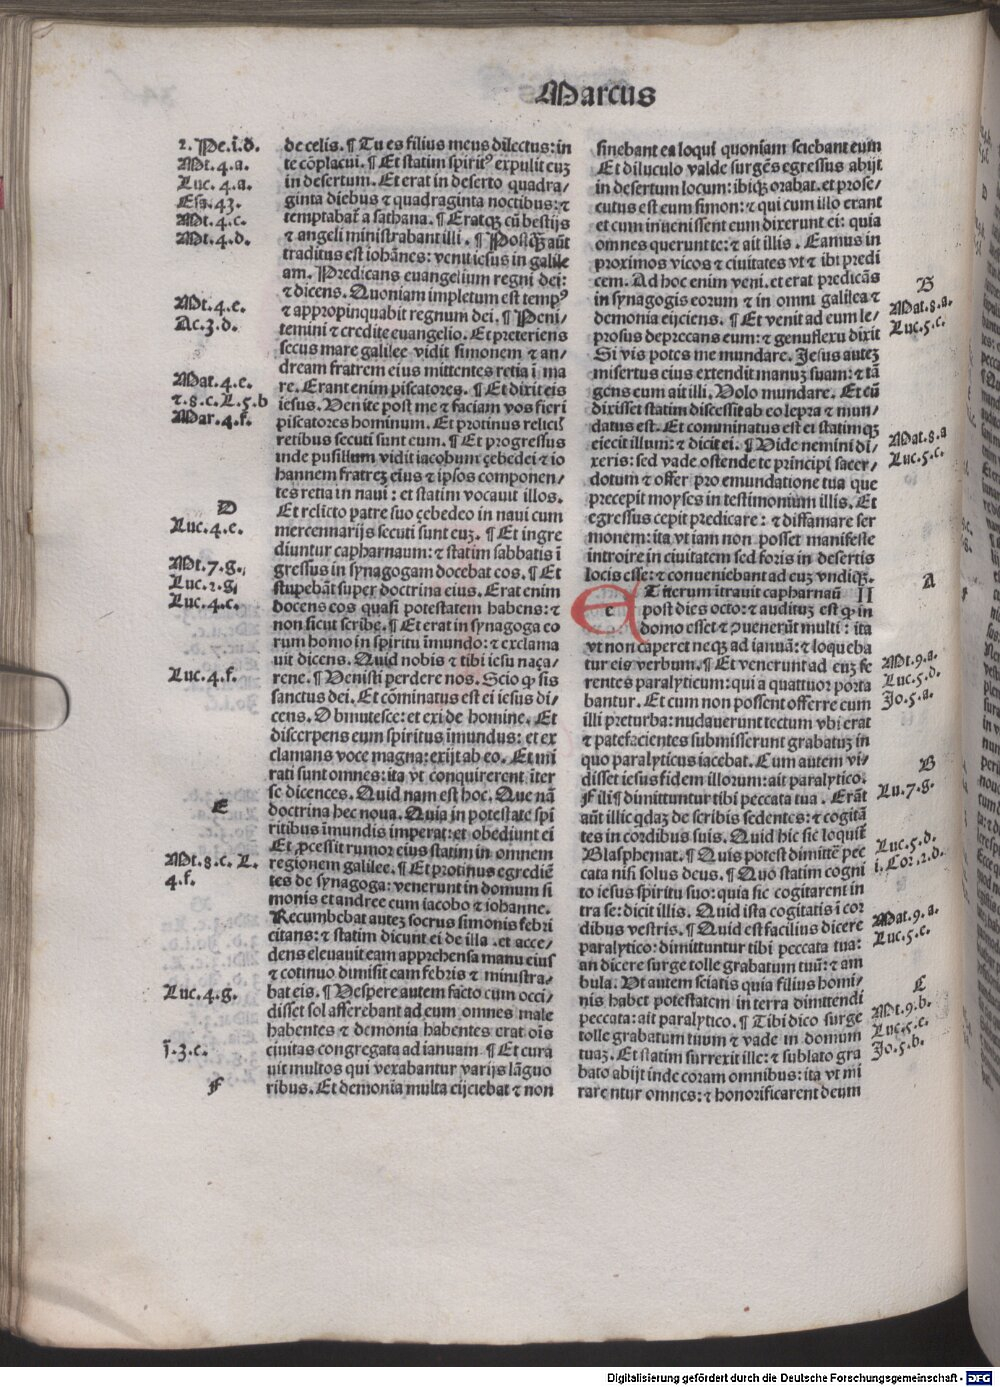 Marcus
2. Pe.i.d.
Mt.4.a.
Luc.4.a.
Esa.43.
Mt.4.c.
Mt.4.d.
Mt.4.e.
Ac.3.d.
Mat.4.e.
⁊.8.c.L.5.b
Mar.4.f.
D
Luc.4.e.
Mt.7.g.
Luc.2.g.
Luc.4.e.
Luc.4.f.
E
Mt.8.c. L.
4.f.
Luc.4.g.
j.3.c.
F
de celis. ¶ Tu es filius meus dilectus: in
te cōplacui. ¶ Et statim spiritꝰ expulit euꝫ
in desertum. Et erat in deserto quadra/
ginta diebus ⁊ quadraginta noctibus: ⁊
temptabat̄ a sathana. ¶ Eratqꝫ cū bestijs
⁊ angeli ministrabant illi. ¶ Postqꝫ̄ aūt
traditus est iohānes: venit iesus in galile
am. Predicans euangelium regni dei:
⁊ dicens. Quoniam impletum est tempꝰ
⁊ appropinquabit regnum dei. ¶ Peni/
temini ⁊ credite euangelio. Et preteriens
secus mare galilee vidit simonem ⁊ an/
dream fratrem eius mittentes retia ī ma
re. Erant enim piscatores. ¶ Et dixit eis
iesus. Venite post me ⁊ faciam vos fieri
piscatores hominum. Et protinus relicti
retibus secuti sunt eum. ¶ Et progressus
inde pusillum vidit iacobum çebedei ⁊ io
hannem fratreꝫ eius ⁊ ipsos componen/
tes retia in naui: et statim vocauit illos.
Et relicto patre suo çebedeo in naui cum
mercennarijs secuti sunt euꝫ. ¶ Et ingre
diuntur capharnaum: ⁊ statim sabbatis ī
gressus in synagogam docebat eos. ¶ Et
stupebāt super doctrina eius. Erat enim
docens eos quasi potestatem habens: ⁊
non sicut scribe. ¶ Et erat in synagoga eo
rum homo in spiritu īmundo: ⁊ exclama
uit dicens. Quid nobis ⁊ tibi iesu naça/
rene. ¶ Venisti perdere nos. Scio ꝙ sis
sanctus dei. Et cōminatus est ei iesus di/
cens. Obmutesce: et exi de homine. Et
discerpens eum spiritus īmundus: et ex
clamans voce magna: exijt ab eo. Et mi
rati sunt omnes: ita vt conquirerent īter
se dicences. Quid nam est hoc. Que nā
doctrina hec noua. Quia in potestate spi
ritibus īmundis imperat: et obediunt ei
Et ꝓcessit rumor eius statim in omnem
regionem galilee. ¶ Et protinus egrediē
tes de synagoga: venerunt in domum si
monis et andree cum iacobo ⁊ iohanne.
Recumbebat auteꝫ socrus simonis febri
citans: ⁊ statim dicunt ei de illa. et acce/
dens eleuauit eam apprehensa manu eius
⁊ cōtinuo dimisit eam febris ⁊ ministra/
bat eis. ¶ Vespere autem facto cum occi/
disset sol afferebant ad eum omnes male
habentes ⁊ demonia habentes erat oīs
ciuitas congregata ad ianuam. ¶ Et cura
uit multos qui vexabantur varijs lāguo
ribus. Et demonia multa eijciebat ⁊ non
sinebant ea loqui quoniam sciebant eum
Et diluculo valde surgēs egressus abijt
in desertum locum: ibiqꝫ orabat. et prose/
cutus est eum simon: ⁊ qui cum illo erant
et cum inuenissent eum dixerunt ei: quia
omnes querunt te: ⁊ ait illis. Eamus in
proximos vicos ⁊ ciuitates vt ⁊ ibi predi
cem. Ad hoc enim veni. et erat predicās
in synagogis eorum ⁊ in omni galilea ⁊
demonia eijciens. ¶ Et venit ad eum le/
prosus deprecans eum: ⁊ genuflexu dixit
Si vis potes me mundare. Jesus auteꝫ
misertus eius extendit manuꝫ suam: ⁊ tā
gens eum ait illi. Volo mundare. Et cū
dixisset statim discessit ab eo lepra ⁊ mun/
datus est. Et cominatus est ei statimqꝫ
eiecit illum: ⁊ dicit ei. ¶ Vide nemini di/
xeris: sed vade ostende te principi sacer/
dotum ⁊ offer pro emundatione tua que
precepit moyses in testimonium illis. Et
egressus cepit predicare: ⁊ diffamare ser
monem: ita vt iam non posset manifeste
introire in ciuitatem sed foris in desertis
locis esse: ⁊ conueniebant ad euꝫ vndiqꝫ.
eT iterum ītrauit capharnaū II
post dies octo: ⁊ audituꝫ est ꝙ in
domo esset ⁊ ꝯuenerūt multi: ita
vt non caperet neqꝫ ad ianuā: ⁊ loqueba
tur eis verbum. ¶ Et venerunt ad euꝫ fe
rentes paralyticum: qui a quattuor porta
bantur. Et cum non possent offerre eum
illi preturba: nudauerunt tectum vbi erat
⁊ patefacientes submisserunt grabatuꝫ in
quo paralyticus iacebat. Cum autem vi/
disset iesus fidem illorum: ait paralytico.
Fili dimittuntur tibi peccata tua. Erāt
aūt illic qdaꝫ de scribis sedentes: ⁊ cogitā
tes in cordibus suis. Quid hic sic loquit̄
Blasphemat. ¶ Quis potest dimittē pec
cata nisi solus deus. ¶ Quo statim cogni
to iesus spiritu suo: quia sic cogitarent in
tra se: dicit illis. Quid ista cogitatis ī cor
dibus vestris. ¶ Quid est facilius dicere
paralytico: dimittuntur tibi peccata tua:
an dicere surge tolle grabatum tuū: ⁊ am
bula. Vt autem sciatis quia filius homi/
nis habet potestatem in terra dimittendi
peccata: ait paralytico. ¶ Tibi dico surge
tolle grabatum tuum ⁊ vade in domum
tuaꝫ. Et statim surrexit ille: ⁊ sublato gra
bato abijt inde coram omnibus: ita vt mi
rarentur omnes: ⁊ honorificarent deum
B
Mat.8.a.
Luc.5.c.
Mat.8.a
Luc.5.c.
A
Mt.9.a.
Luc.5.d.
Jo.5.a.
B
Lu.7.g.
Luc.5.d.
i.Cor.2.d.
Mat.9.a.
Luc.5.e.
C
Mt.9.b.
Luc.5.e.
Jo.5.b.
Digitalisierung gefördert durch die Deutsche Forschungsgemeinschaft - DFG